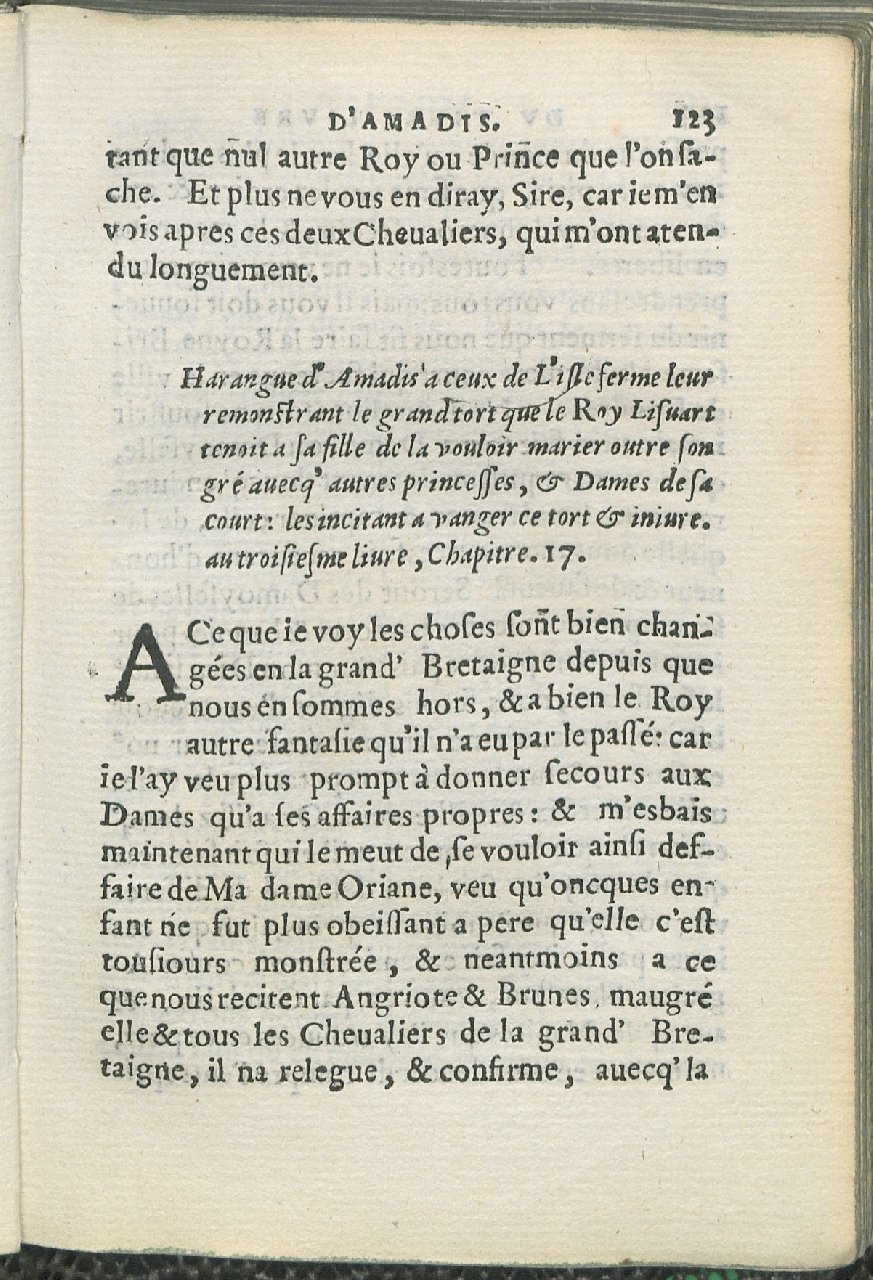 D'AMADIS. 123
tant que nul autre Roy ou Prince que l'on ſa-
che. Et plus ne vous en diray, Sire, car ie m'en
vois apres ces deux Cheualiers, qui m'ont aten-
du longuement.
Harangue d'Amadis a ceux de L'iſle ferme leur
remonſtrant le grand tort que le Roy Liſuart
tenoit a ſa fille de la vouloir marier outre ſon
gré auecq' autres princeſſes, & Dames de ſa
court: les incitant a vanger ce tort & iniure.
au troiſieſme liure, Chapitre. 17.
A Ce que ie voy les choſes ſont bien chan-
gées en la grand' Bretaigne depuis que
nous en ſommes hors, & a bien le Roy
autre fantaſie qu'il n'a eu par le paſſé: car
ie l'ay veu plus prompt à donner ſecours aux
Dames qu'a ſes affaires propres: & m'esbais
maintenant qui le meut de ſe vouloir ainſi def-
faire de Ma dame Oriane, veu qu'oncques en-
fant ne fut plus obeiſſant a pere qu'elle c'eſt
touſiours monſtrée, & neantmoins a ce
que nous recitent Angriote & Brunes, maugré
elle & tous les Cheualiers de la grand' Bre-
taigne, il na relegue, & confirme, auecq' la